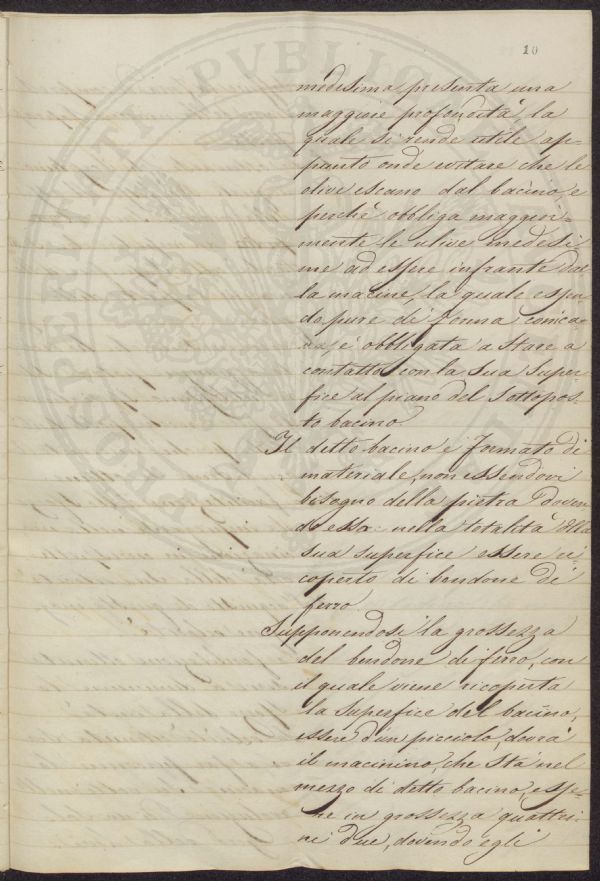 10
medesima presenta una
maggiore profondità, la
quale si rende utile ap-
punto onde evitare che le
olive escano dal bacino, e
perchè obbliga maggior-
mente le ulive medesi
me ad essere infrante dal
la macine, la quale essen
do pure di forma conica
è obbligata a stare a
contatto con la sua super
fice al piano del sottopos-
to bacino.
Il detto bacino è formato di
materiale, non essendovi
bisogno della pietra doven
do esso nella totalità della
sua superfice essere ri
coperto di bendone di
ferro.
Supponendosi la grossezza
del bendone di ferro, con
il quale viene ricoperta
la superfice del bacino,
essere d'un picciolo, dovrà
il macinino, che stà nel
mezzo di detto bacino, esse-
re in grossezza quattri-
ni due, dovendo egli
PROSPERITATI PVBLICAE